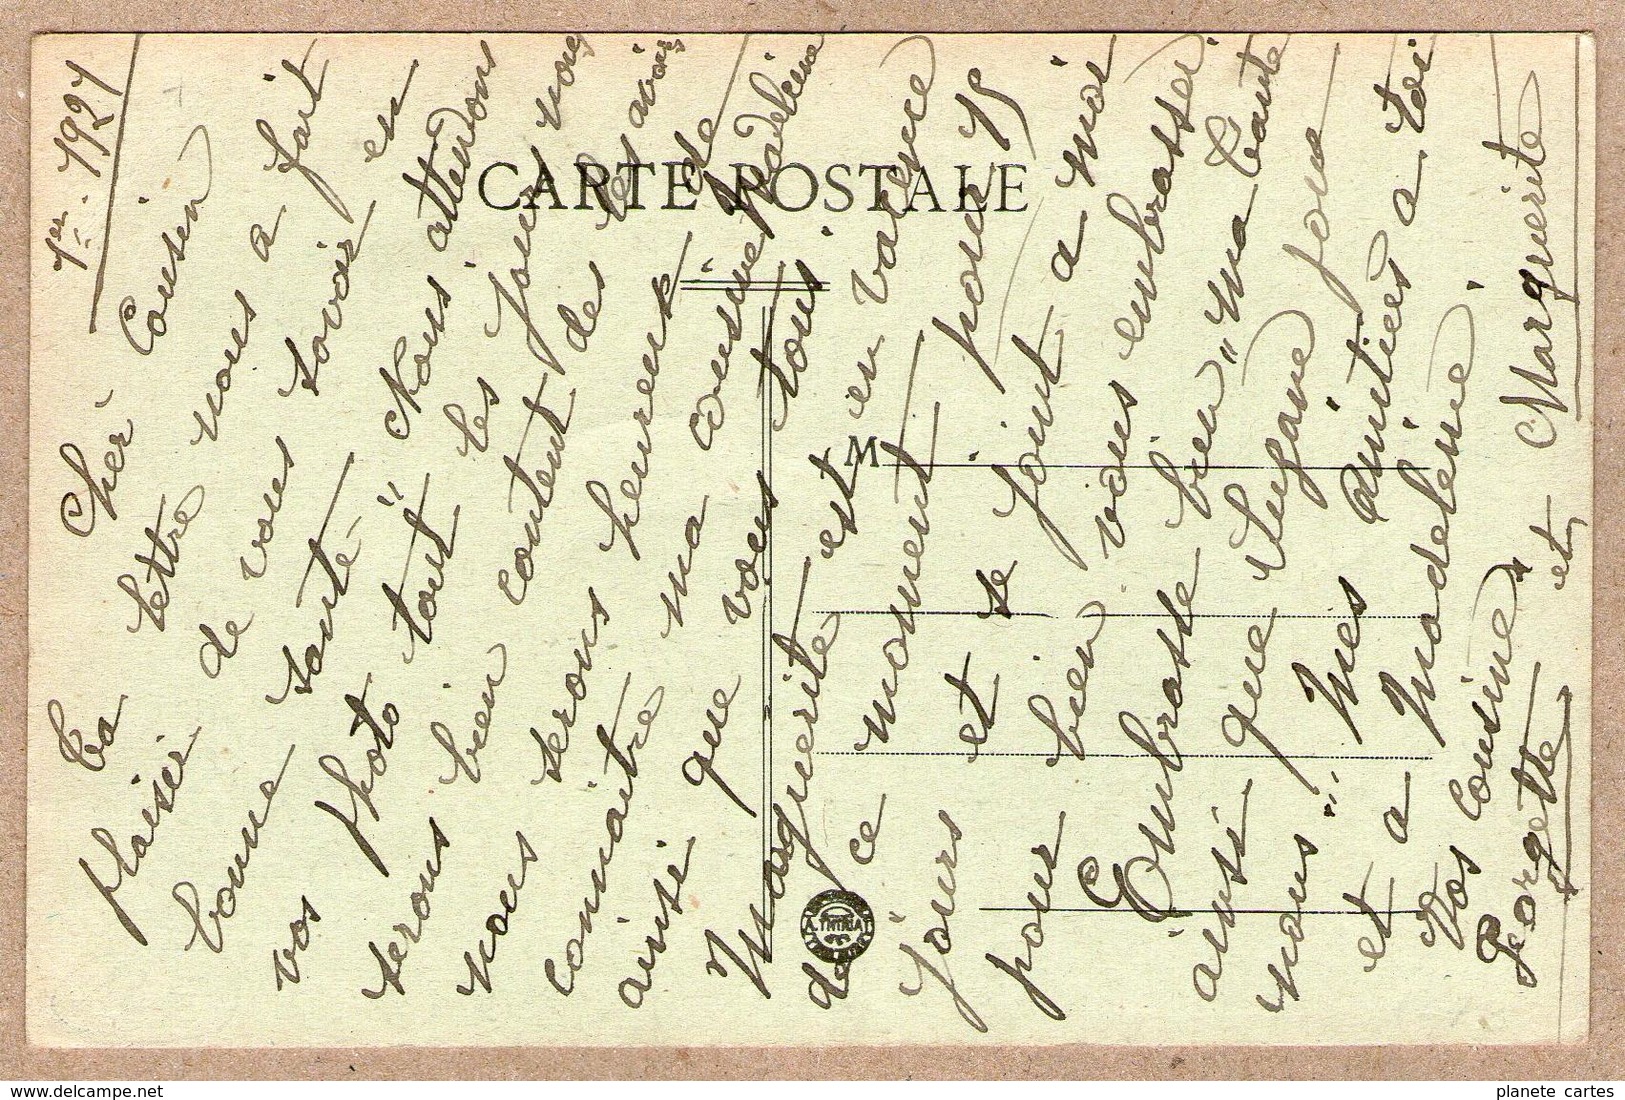 1er - 1921
Cher Cousin
Ta lettre nous a fait
plaisir de vous savoir en
bonne santé. Nous attendons
vos photo" tout les jours nous
serons bien content des les avoirs
nous serons heureuse de
connaitre ma cousine Madeleine
ainsi que vous tous.
Marguerite est en vacance
de ce moment pour 15
jours et se joint a moi
pour bien vous embrasser
Embrasse bien " ma tante
ainsi que Suzanne pour
nous" Mes amitiées a toi
et a Madeleine.
Vos Cousine"
Georgette et Marguerite
CARTE POSTALE
M
delcampe.net
planete cartes